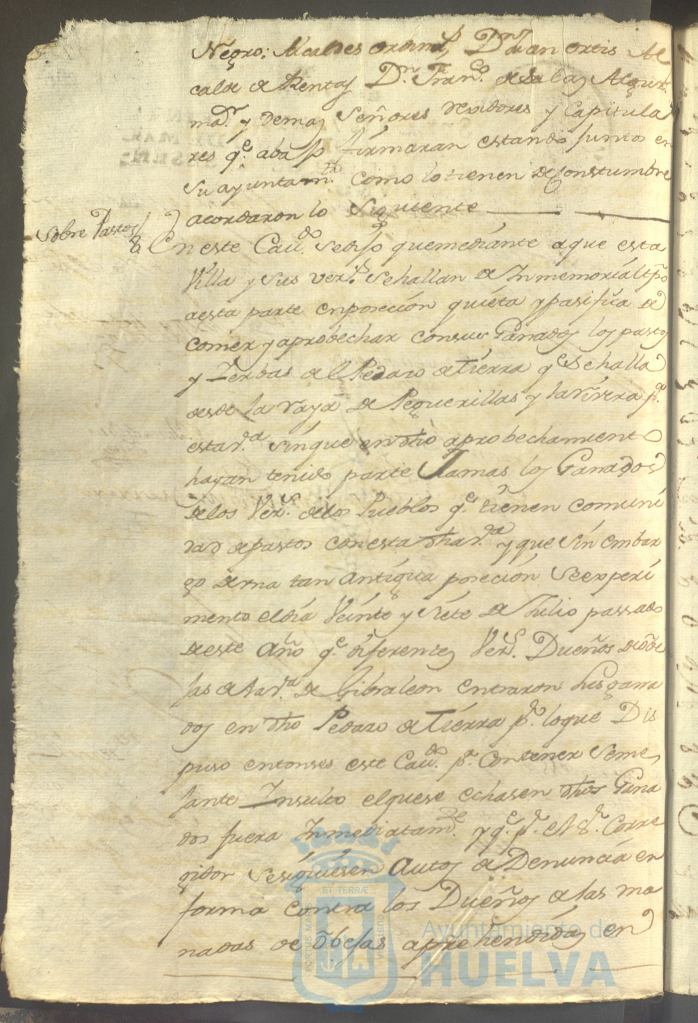 Negro; Alcaldes ordin.s D.n Juan ortis Al
calde de Rentas D.n Fran.co de la
y demas Señores rexidores y Capitula
res q.e abajo firmaran estando juntos en
su ayuntam.to como lo tienen de Constumbre
acordaron lo siguiente
Sobre Pastos
En este Cav.do se dijo que mediante a que esta
Villa y sus vez.s se hallan de Inmemorial tp.o
a esta parte en poseción quieta y pasifica de
comer y aprobechar con sus Ganados los pastos
y Yerbas del Pedazo de tierra q.e se halla
desde la raya de Peguerillas y la rivera p.r
esta v.a sin que en dho aprobechamiento
hayan tenido parte Jamas los Ganados
de los Vez.s de los Pueblos q.e tienen comuni
dad de pastos con esta dha v.a y que sin embar
go de una tan antigua poseción se experi
mento el día Veinte y siete de Julio passado
de este año q.e diferentes Vez.s Dueños de obe
jas de la v.a de Gibraleon entraron sus gana
dos en dho Pedazo de tierra p.r lo que Dis
puso entonses este Cav.do p.a Contener Seme
jante Insulto el que se echasen dhos Gana
dos fuera Inmediatam.te y q.e p.r el S.r Corre
gidor se siguiesen Autos de Denuncia en
forma contra los Dueños de las ma
nadas de obejas aprehendidas en
ET TERRÆ
Ayuntamiento de
HUELVA